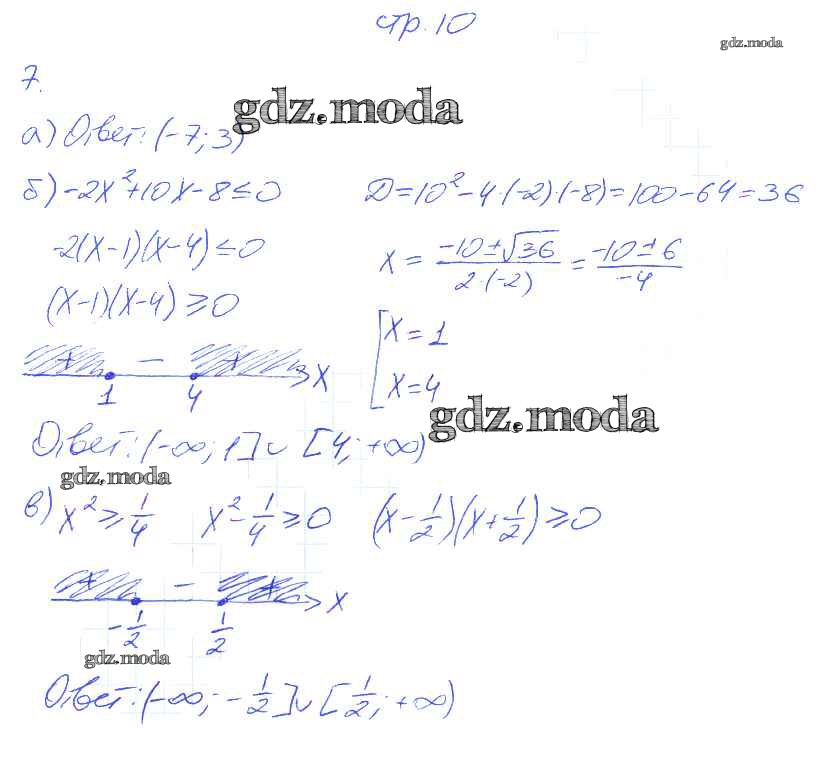 стр. 10
gdz.moda
7.
gdz.moda
а) Ответ: (-7; 3)
б) -2x²+10x-8≤0 D=10²-4·(-2)·(-8)=100-64=36
-2(x-1)(x-4)≤0 x = (-10±√36)/(2·(-2)) = (-10±6)/(-4)
(x-1)(x-4)≥0
[x=1
+ - + x
1 4
x=4
gdz.moda
Ответ: (-∞; 1]∪[4; +∞)
gdz.moda
в) x²≥1/4 x²-1/4≥0 (x-1/2)(x+1/2)≥0
+ - + x
-1/2 1/2
gdz.moda
Ответ: (-∞; -1/2]∪[1/2; +∞)